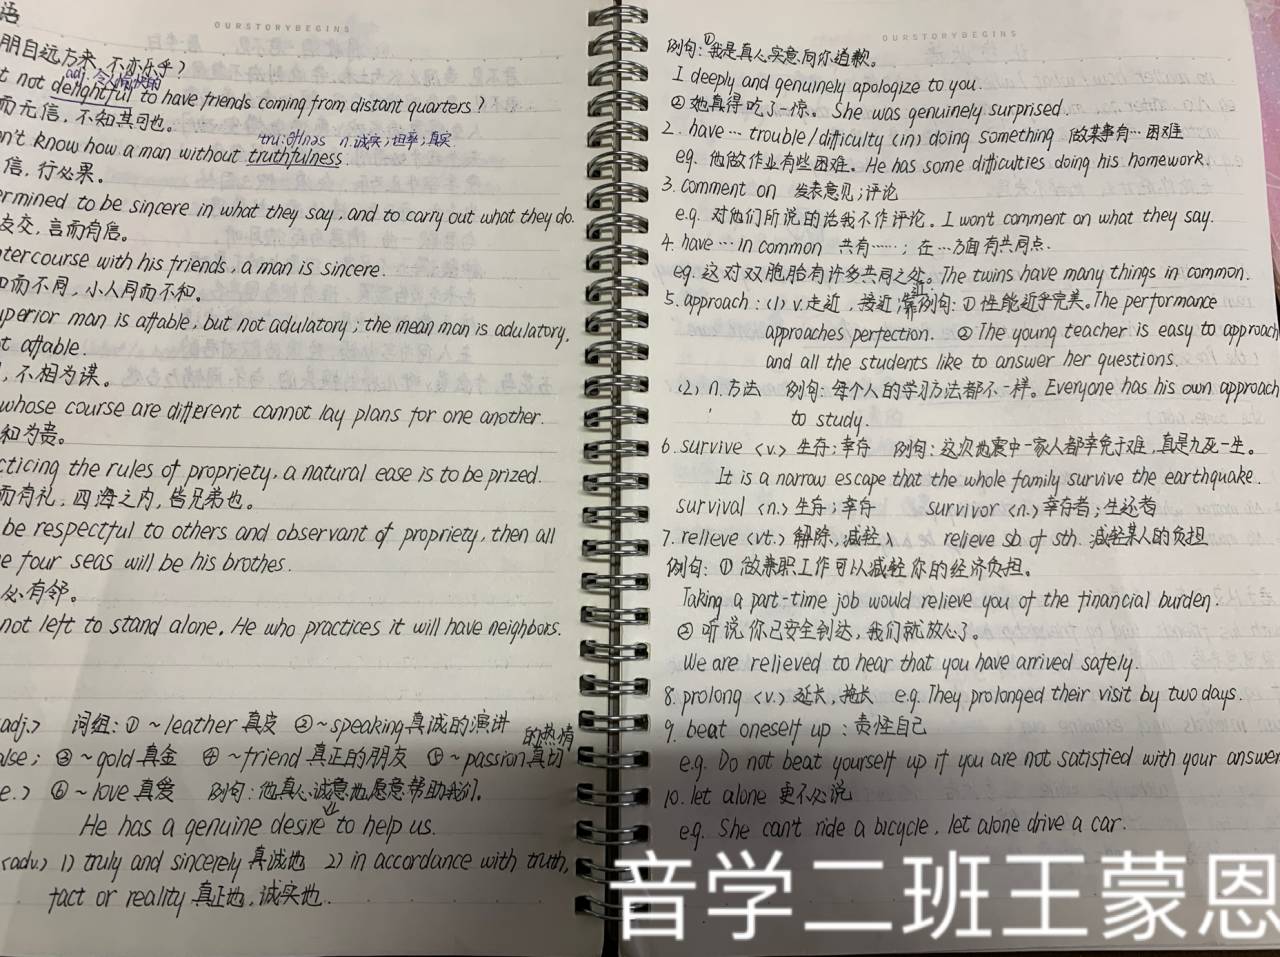 语
OURSTORYBEGINS
朋自远方来，不亦乐乎？
adj. 令人愉快的
t not delightful to have friends coming from distant quarters?
而无信，不知其可也。
n. 诚实；坦率；真实
n't know how a man without truthfulness.
信，行必果。
ermined to be sincere in what they say, and to carry out what they do.
友交，言而有信。
ntercourse with his friends, a man is sincere.
和而不同，小人同而不和。
uperior man is affable, but not adulatory; the mean man is adulatory,
t affable.
，不相为谋。
whose course are different cannot lay plans for one another.
和为贵。
cticing the rules of propriety, a natural ease is to be prized.
而有礼，四海之内，皆兄弟也。
be respectful to others and observant of propriety, then all
e four seas will be his brothes.
必有邻。
not left to stand alone. He who practices it will have neighbors.
adj.> 词组：① ~leather 真皮 ② ~speaking 真诚的演讲
alse; ③ ~gold 真金 ④ ~friend 真正的朋友 ⑤ ~passion 真切的热情
e.> ⑥ ~love 真爱 例句：他真心诚意地愿意帮助我们。
He has a genuine desire to help us.
<adv.> 1) truly and sincerely 真诚地 2) in accordance with truth,
fact or reality 真正地，诚实地.
OURSTORYBEGINS
例句：①我是真心实意向你道歉。
I deeply and genuinely apologize to you.
② 她真得吃了一惊。 She was genuinely surprised.
2. have … trouble/difficulty (in) doing something 做某事有…困难
eg. 他做作业有些困难。He has some difficulties doing his homework.
3. comment on 发表意见；评论
e.g. 对他们所说的话我不作评论。I won't comment on what they say.
4. have … in common 共有……；在…方面有共同点.
eg. 这对双胞胎有许多共同之处。The twins have many things in common.
5. approach: (1) v. 走近，接近；靠近 例句：① 性能近乎完美。The performance
approaches perfection. ② The young teacher is easy to approach
and all the students like to answer her questions.
(2) n. 方法 例句：每个人的学习方法都不一样。Everyone has his own approach
to study.
6. survive <v.> 生存；幸存 例句：这次地震中一家人都幸免于难，真是九死一生。
It is a narrow escape that the whole family survive the earthquake.
survival <n.> 生存；幸存 survivor <n.> 幸存者；生还者
7. relieve <vt.> 解除、减轻 relieve sb of sth. 减轻某人的负担
例句：① 做兼职工作可以减轻你的经济负担。
Taking a part-time job would relieve you of the financial burden.
② 听说你已安全到达，我们就放心了。
We are relieved to hear that you have arrived safely.
8. prolong <v.> 延长，拖长 e.g. They prolonged their visit by two days.
9. beat oneself up：责怪自己
e.g. Do not beat yourself up if you are not satisfied with your answer
10. let alone 更不必说
eg. She can't ride a bicycle, let alone drive a car.
音学二班王蒙恩